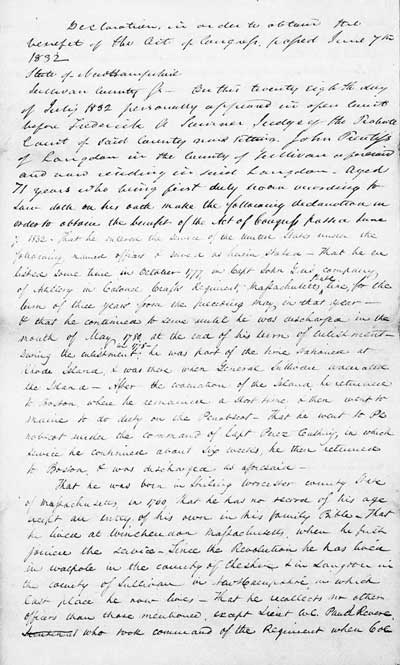 Declaration, in order to obtain the
benefit of the Act of Congress, passed June 7th
1832
State of New Hampshire
Sullivan County Ss — On this twenty eighth day
of July 1832 personally appeared in open Court
before Frederick A Sumner Judge of the Probate
Court of said County now sitting, John
of Langdon in the County of Sullivan aforesaid
and now residing in said Langdon - Aged
71 years who being first duly sworn according to
law doth on his oath make the following declaration in
order to obtain the benefit of the Act of Congress passed June
7. 1832. That he entered the service of the United States under the
following named officers & served as herein stated - That he en
listed some time in October 1777 in Capt John company
of Artillery in Colonel Crafts Regiment, Massachusetts State line, for the
term of three years from the preceding May, in that year -
& that he continued to serve until he was discharged in the
month of May, 1780, at the end of his term of enlistment -
During the enlistment, he was part of the time stationed at
Rhode Island, & was there when General Sullivan evacuated
the Island - After the evacuation of the Island, he returned
to Boston, where he remained a short time & then went to
Maine to do duty on the Penobscot - That he went to Pe
nobscot under the command of Capt Perez Cushing, in which
service he continued about six weeks, he then returned
to Boston, & was discharged as aforesaid -
That he was born in Worcester County State
of Massachusetts, in 1760, that he has no record of his age
except an entry of his own in his family Bible - That
he lived at Winchendon Massachusetts, when he first
joined the service - Since the Revolution he has lived
in Walpole in the County of Cheshire & in Langdon in
the County of Sullivan in New Hampshire in which
last place he now lives - That he recollects no other
officers than those mentioned, except Lieut Col. Paul Revere
who took command of the Regiment when Col